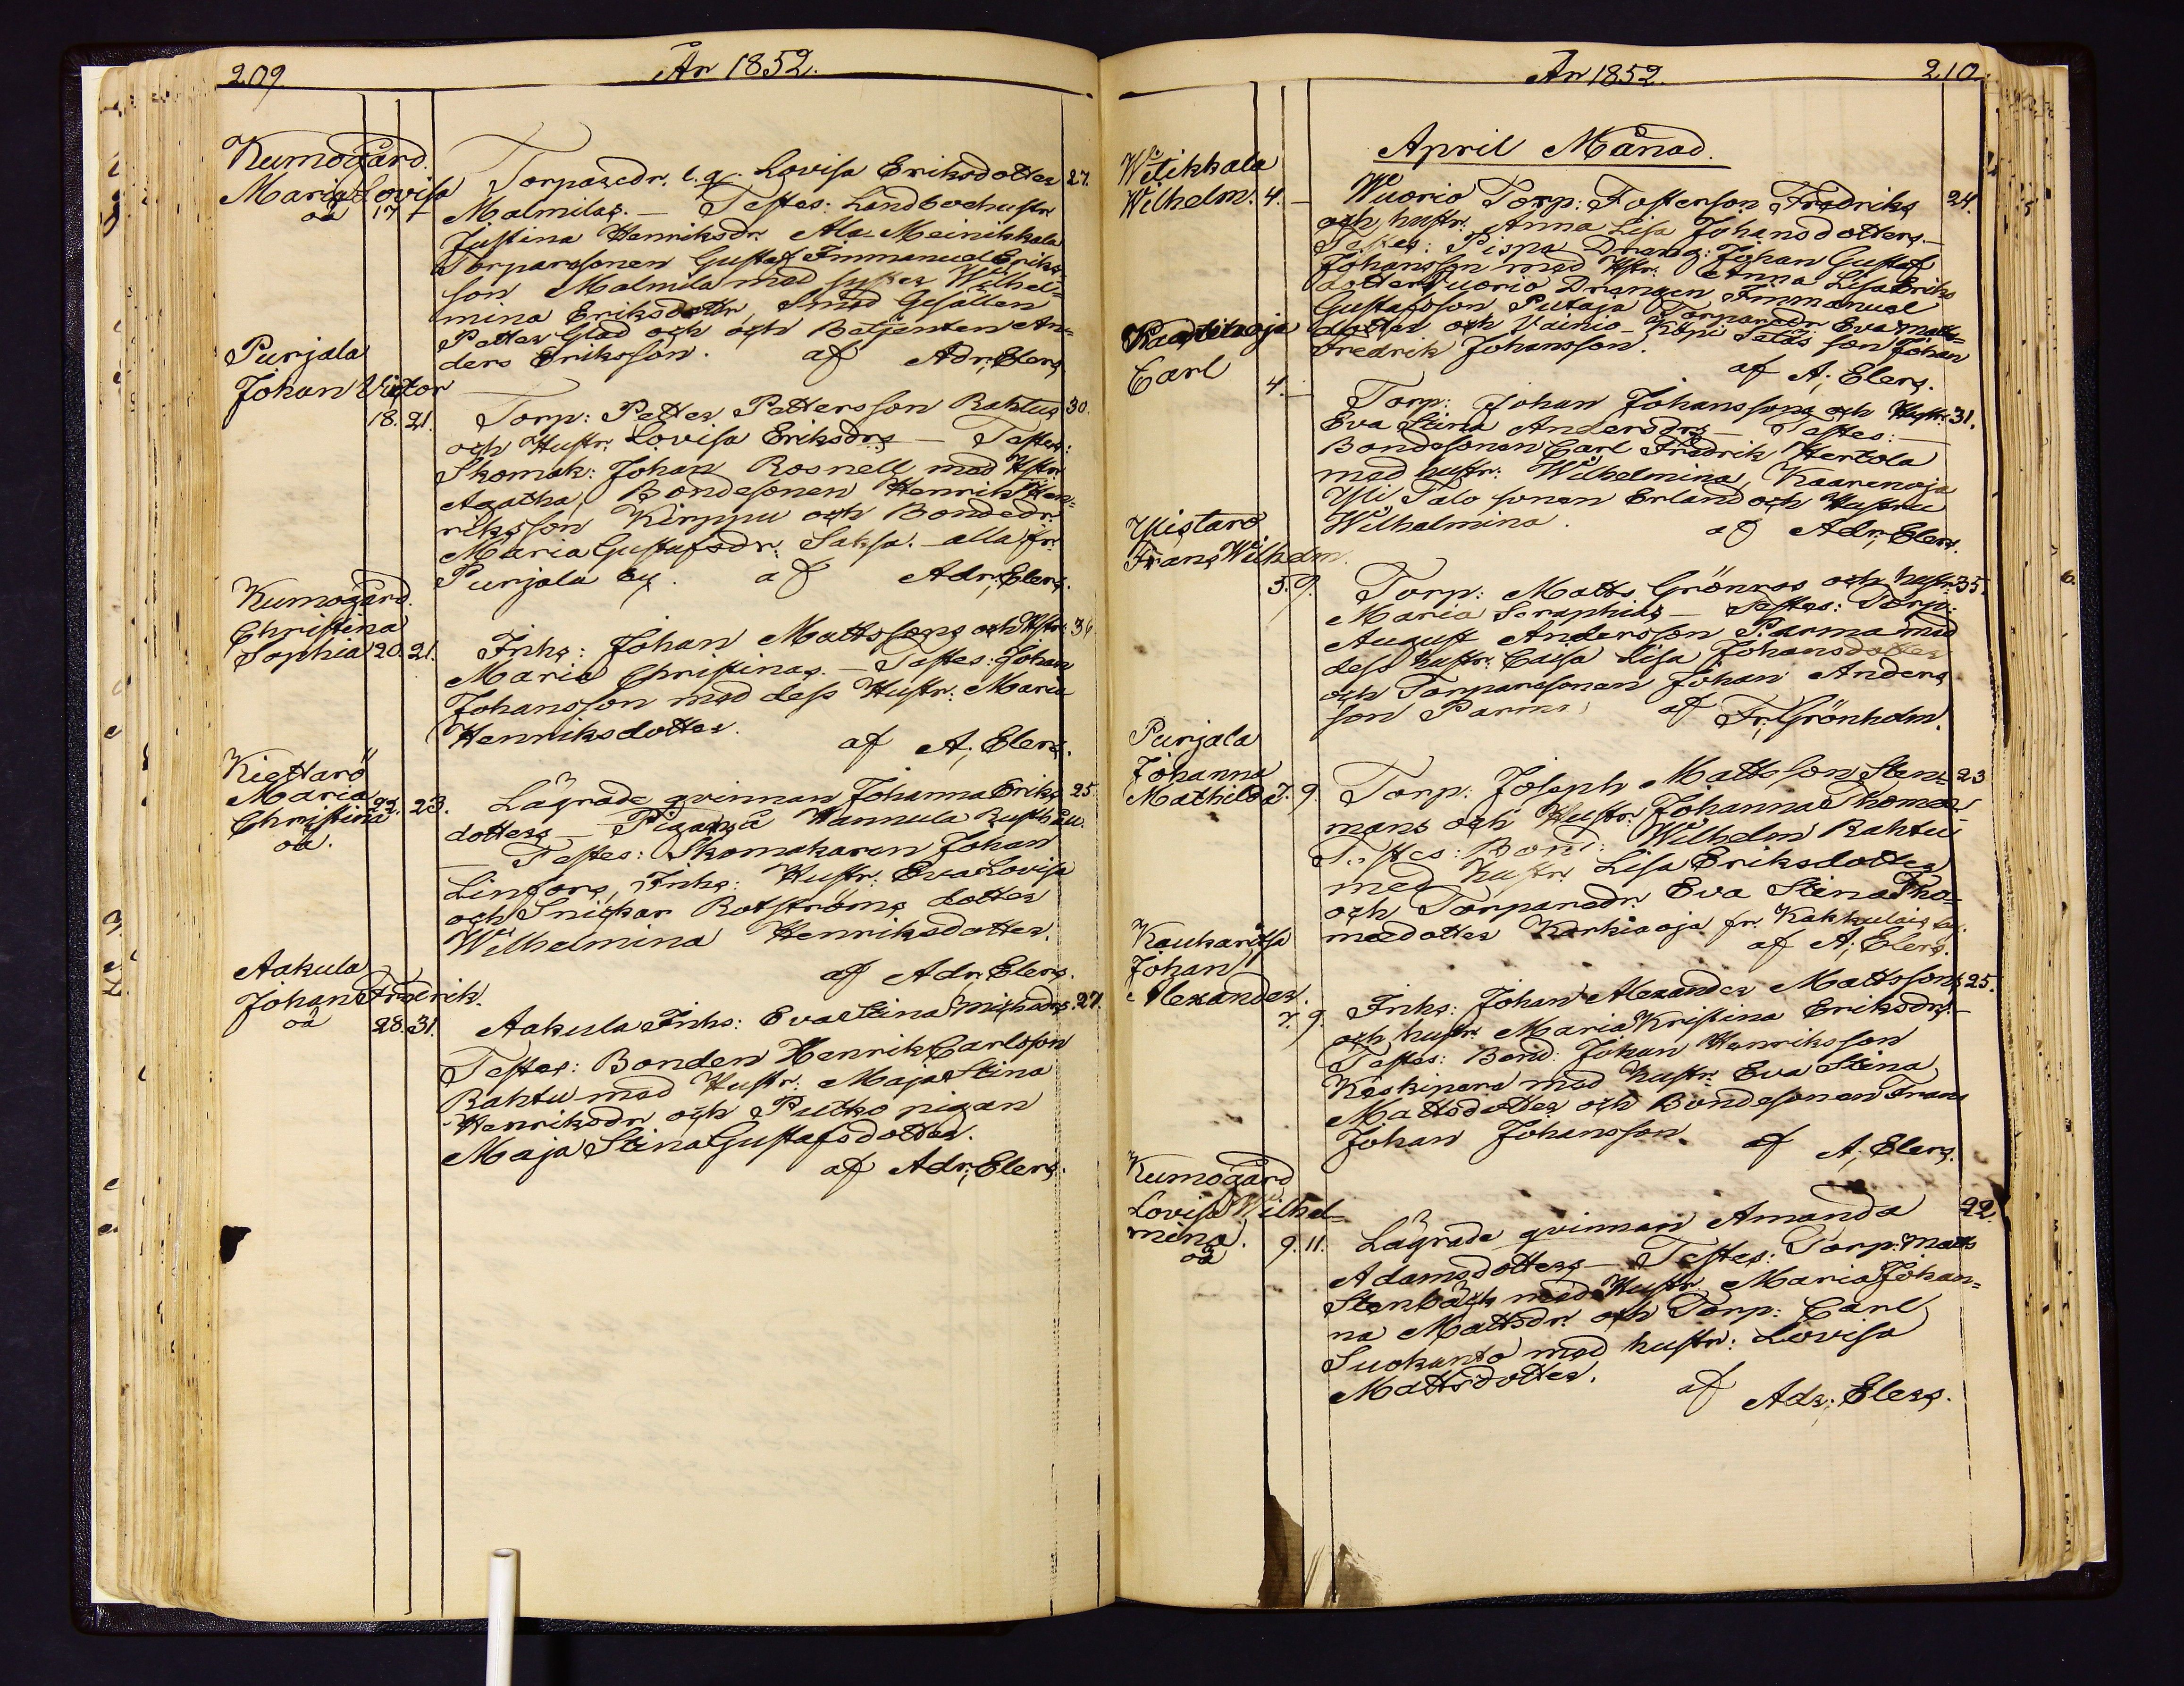 209. År 1852.
Kumogård.
Maria Lovisa
oä 17 –
Torparedr. l.q. Lovisa Eriksdotter 27.
Malmilas. – Testes: Landbohustr
Justina Henriksdr Ala Meinikkala
Torparesonen Gustaf Immanuel Eriks=
son Malmila med syster Wilhel=
mina Eriksdottr, Smed Gesällen
Petter Glad och och Betjenten An=
ders Eriksson. af Adr; Elers
Purjala
Johan Victor
18. 21.
Torp: Petter Pettersson Rahtus 30.
och Hustr. Lovisa Eriksdrs – Testes:
Skomak: Johan Rosnell med Hstr.
Agatha, Bondesonen Henrik Hen=
riksson Kirppu och Bondedr.
Maria Gustafsdr. Saksa. – alla fr.
Purjala by. af Adr; Elers.
Kumogård.
Christina
Sophia 20. 21.
Inhs: Johan Mattssons och Hstr. 36
Maria Christinas. – Testes: Johan
Johansson med dess Hustr. Maria
Henriksdotter. af A; Elers.
Kiettarö
Maria
Christina 22. 23.
oä.
Lägrade qvinnan Johanna Eriks 25.
dotters – Pigans å Hannula
– Testes: Skomakaren Johan
Linfors, Inhs: Hustr: Eva Lovisa
och Snickar Rotströms dotter
Wilhelmina Henriksdotter.
af Adr; Elers.
Aakula
Johan Fredrik.
oä 28. 31.
Aakula Inhs: Eva Stina Michadrs. 27.
Testes: Bonden Henrik Carlsson
Rahtu med Hustr: Maja Stina
Henriksdr och Putko pigan
Maja Stina Gustafsdotter.
af Adr; Elers.
År 1852. 210.
April Månad.
Witikkala
Wilhelm. 4. –
Wuorio Torp: Fosterson Fredriks 24.
och hustr. Anna Lisa Johansdotters. –
Testes: Pispa Dreng: Johan Gustaf
Johansson med Hstr. Anna Lisa Eriks
dotter, Vuorio Drengen Immanuel
Gustafsson, Putaja Torparedr. Eva Matts=
dotter och Vainio- Köpi Talas son Johan
Fredrik Johansson. af A; Elers.
Carl 4. –
Torp: Johan Johanssons och Hustr: 31.
Eva Stina Andersdrs – Testes: –
Bondesonen Carl Fredrik Hertola
med hustr: Wilhelmina, Kaarenoja
Yli Talo sonen Erland och Hustru
Wilhelmina. af Adr; Elers.
Ylistaro
Frans Wilhelm.
5. 9.
Torp: Matts Grönroos och hustr. 35.
Maria Seraphias – Testes: Torp:
August Andersson Parma med
dess hustr. Caisa Lisa Johansdotter
och Torparesonen Johan Anders
son Parma. af Fr; Grönholm.
Purjala
Johanna
Mathilda 7. 9.
Torp: Joseph Mattsson Sten= 23
mans och Hustr: Johanna Thomas
Testes: Bond: Wilhelm Rahtu
med hustr. Lisa Eriksdotter
och Torparedr. Eva Stina Tho=
masdotter Karhiaoja fr. Kakkulais by.
af A; Elers.
Kaukaritsa
Johan
Alexander.
7. 9.
Inhs: Johan Alexander Mattssons 25.
och hustr. Maria Kristina Eriksdrs. –
Testes: Bond: Johan Henriksson
Keskinara med hustr. Eva Stina
Mattsdotter och Bondesonen Frans
Johan Johansson. af A; Elers.
Kumogård
Lovisa Wilhel=
mina. 9. 11.
oä
Lägrade qvinnan Amanda 22.
Adamsdotters – Testes: Torp: Matts
Stenbäck med Hustr. Maria Johan=
na Mattsdr. och Torp: Carl
Suokanto med hustr: Lovisa
Mattsdotter. af Adr; Elers.